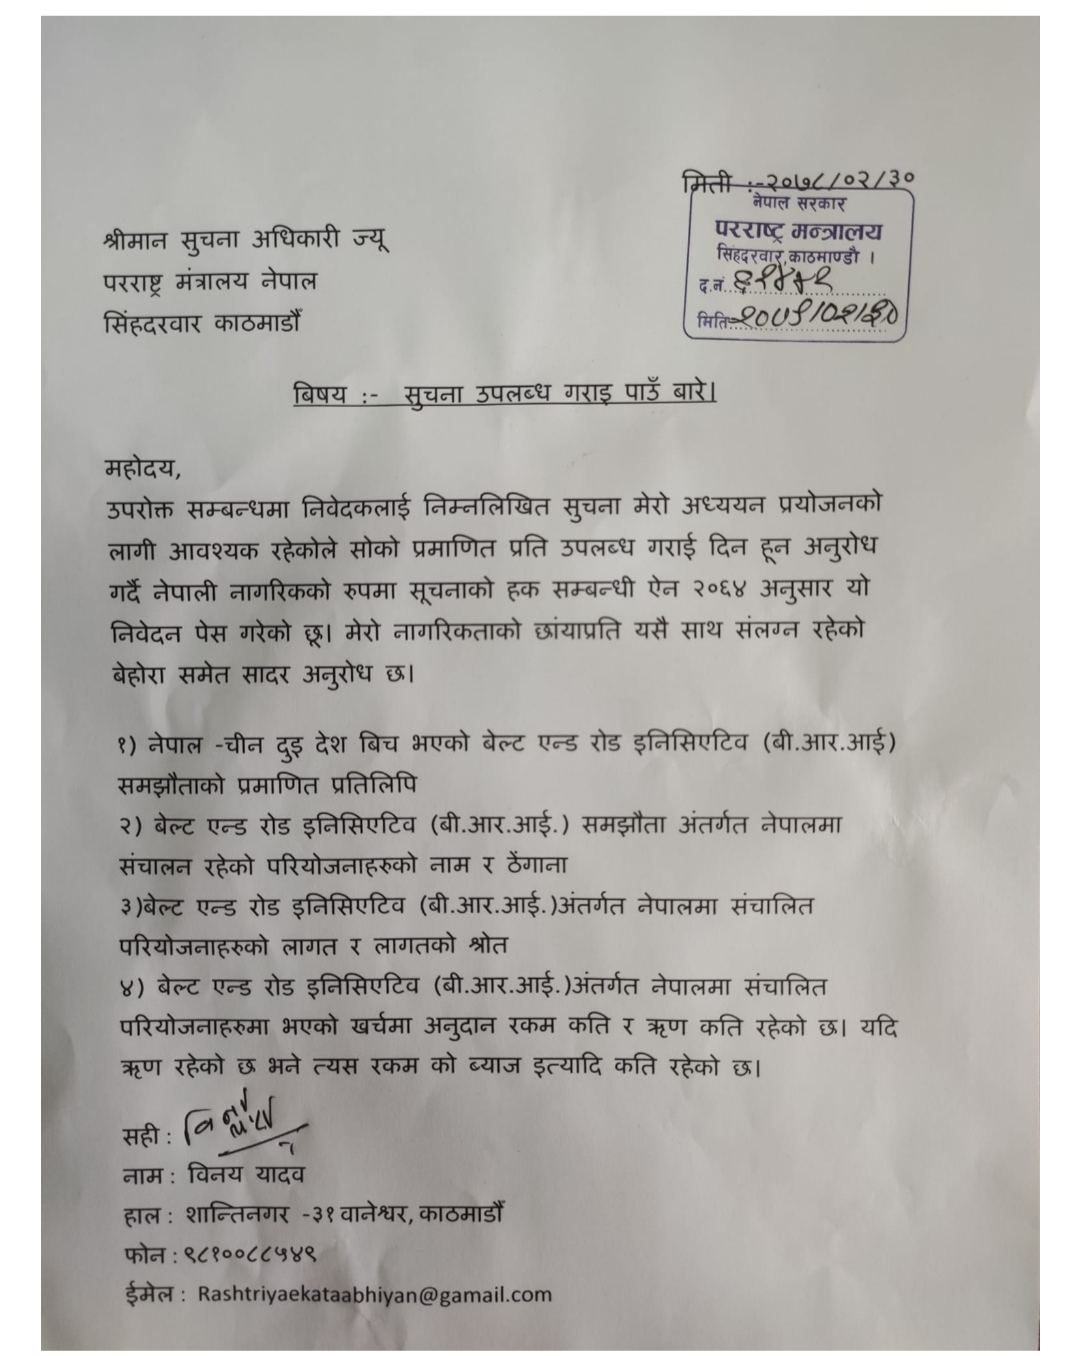 मिती :-२०७८/०२/३०
नेपाल सरकार
परराष्ट्र मन्त्रालय
सिंहदरवार,काठमाण्डौ ।
द.नं.
मिति:
श्रीमान सुचना अधिकारी ज्यू
परराष्ट्र मंत्रालय नेपाल
सिंहदरवार काठमाडौँ
बिषय :- सुचना उपलब्ध गराइ पाउँ बारे|
महोदय,
उपरोक्त सम्बन्धमा निवेदकलाई निम्नलिखित सुचना मेरो अध्ययन प्रयोजनको
लागी आवश्यक रहेकोले सोको प्रमाणित प्रति उपलब्ध गराई दिन हून अनुरोध
गर्दै नेपाली नागरिकको रुपमा सूचनाको हक सम्बन्धी ऐन २०६४ अनुसार यो
निवेदन पेस गरेको छू| मेरो नागरिकताको छांयाप्रति यसै साथ संलग्न रहेको
बेहोरा समेत सादर अनुरोध छ|
१) नेपाल -चीन दुइ देश बिच भएको बेल्ट एन्ड रोड इनिसिएटिव (बी.आर.आई)
समझौताको प्रमाणित प्रतिलिपि
२) बेल्ट एन्ड रोड इनिसिएटिव (बी.आर.आई.) समझौता अंतर्गत नेपालमा
संचालन रहेको परियोजनाहरुको नाम र ठेंगाना
३)बेल्ट एन्ड रोड इनिसिएटिव (बी.आर.आई.)अंतर्गत नेपालमा संचालित
परियोजनाहरुको लागत र लागतको श्रोत
४) बेल्ट एन्ड रोड इनिसिएटिव (बी.आर.आई.)अंतर्गत नेपालमा संचालित
परियोजनाहरुमा भएको खर्चमा अनुदान रकम कति र ऋण कति रहेको छ| यदि
ऋण रहेको छ भने त्यस रकम को ब्याज इत्यादि कति रहेको छ|
सही :
नाम : विनय यादव
हाल : शान्तिनगर -३१ वानेश्वर, काठमाडौँ
फोन : ९८१००८८५४९
ईमेल : Rashtriyaekataabhiyan@gamail.com